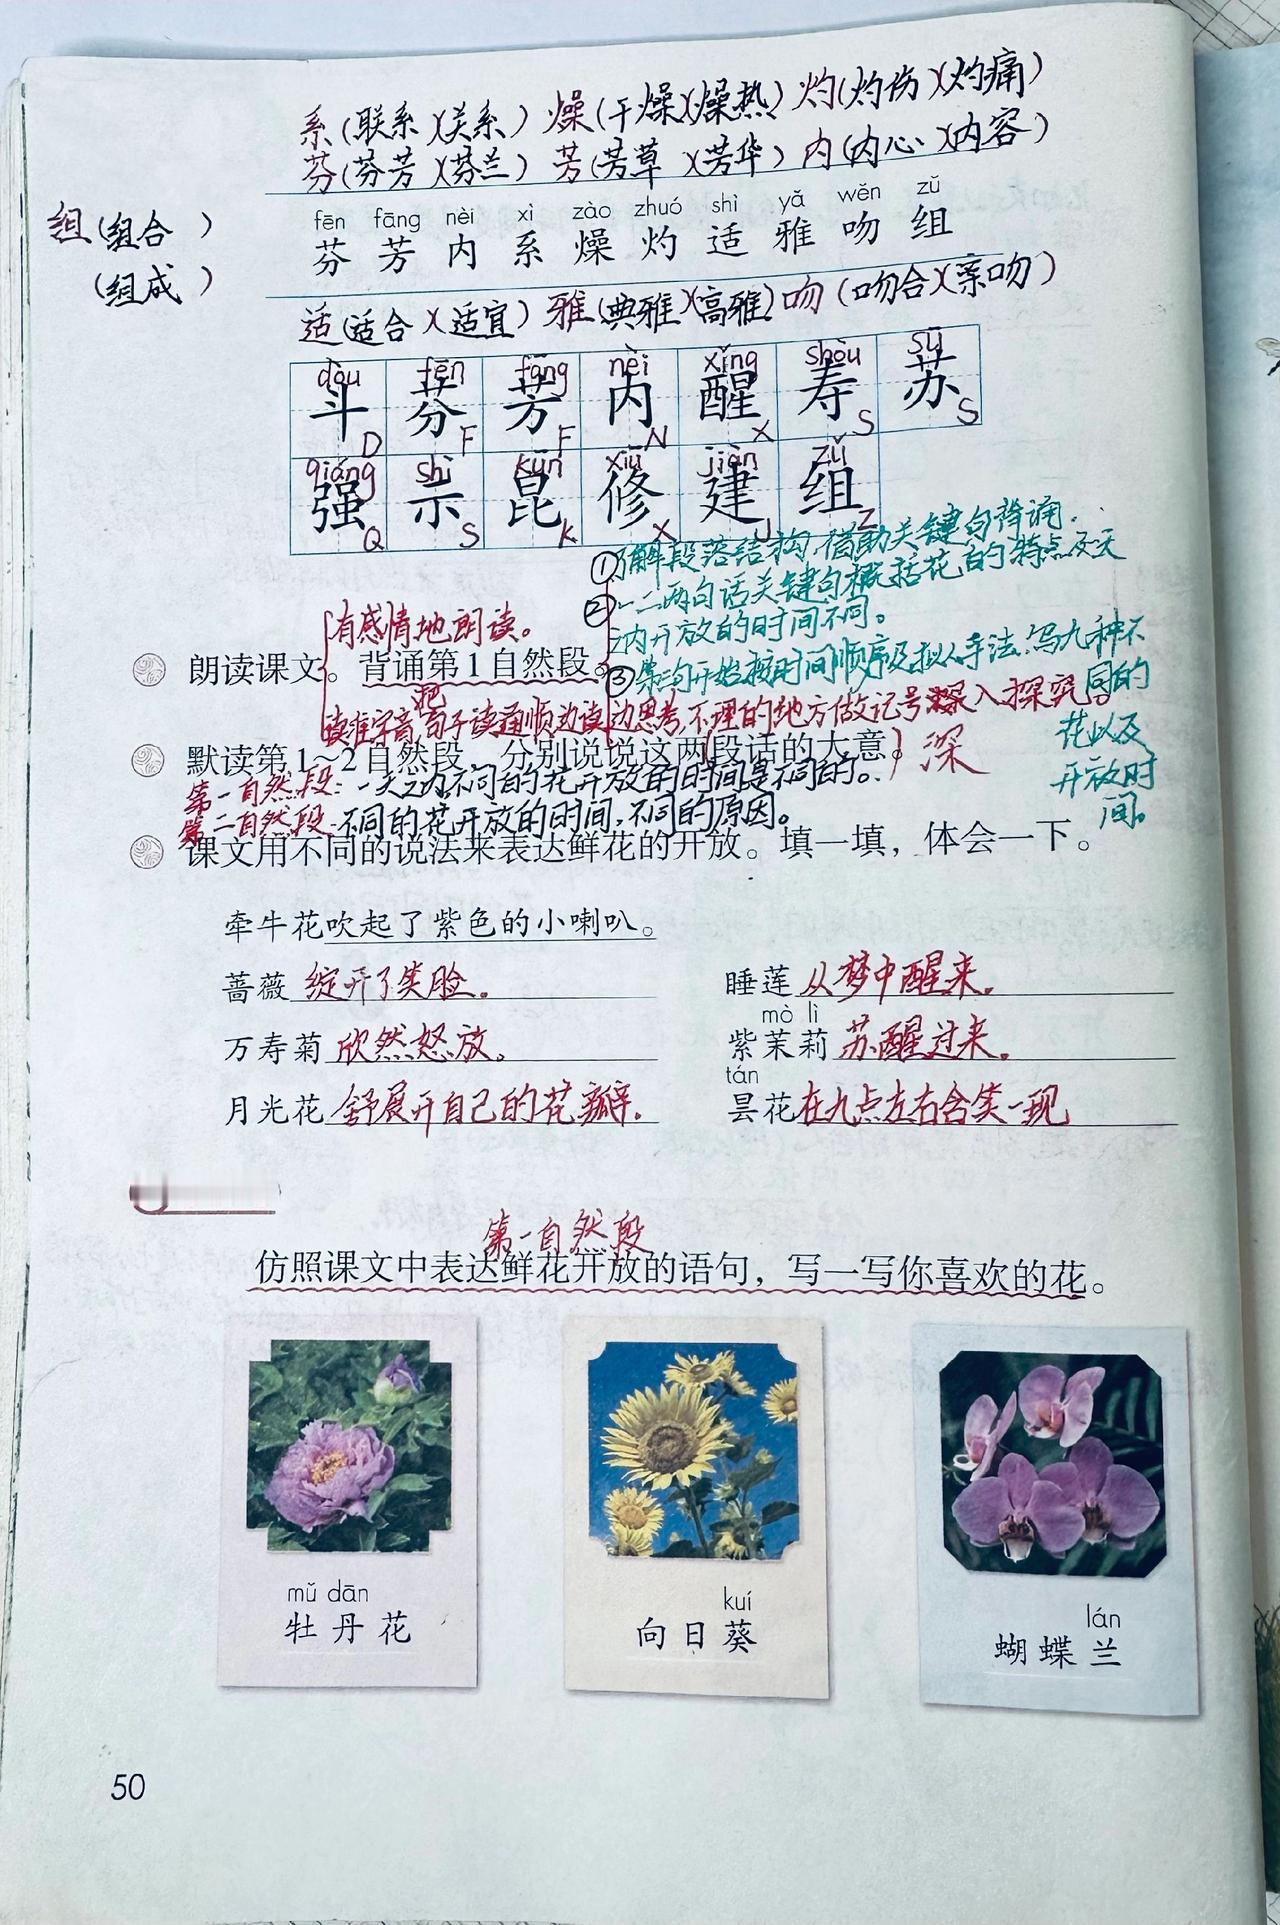 系(联系)(关系) 燥(干燥)(燥热) 灼(灼伤)(灼痛)
芬(芬芳)(芬兰) 芳(芳草)(芳华) 内(内心)(内容)
组(组合)
(组成)
fēn fāng nèi xì zào zhuó shì yǎ wěn zǔ
芬 芳 内 系 燥 灼 适 雅 吻 组
适(适合)(适宜) 雅(典雅)(高雅) 吻(吻合)(亲吻)
dòu fēn fāng nèi xǐng shòu sū
斗 芬 芳 内 醒 寿 苏
D F F N X S S
qiáng shì kūn xiū jiàn zǔ
强 示 昆 修 建 组
Q S K X J Z
①了解段落结构,借助关键句背诵.
②一二两句话关键句概括花的特点及一天
之内开放的时间不同。
③第三句开始按时间顺序及拟人手法.写九种不
同的
花以及
开放时
间。
有感情地朗读。
朗读课文。背诵第1自然段。
读准字音,把句子读通顺边读边思考,不理的地方做记号深入探究。
深
默读第1~2自然段,分别说说这两段话的大意。
第一自然段:一天之内不同的花开放的时间是不同的。
第二自然段:不同的花开放的时间,不同的原因。
课文用不同的说法来表达鲜花的开放。填一填,体会一下。
牵牛花吹起了紫色的小喇叭。
蔷薇 绽开了笑脸。
睡莲 从梦中醒来。
mò lì
万寿菊 欣然怒放。
紫茉莉 苏醒过来。
tán
月光花 舒展开自己的花瓣.
昙花 在九点左右含笑一现
第一自然段
仿照课文中表达鲜花开放的语句,写一写你喜欢的花。
mǔ dān
牡丹花
kuí
向日葵
lán
蝴蝶兰
50